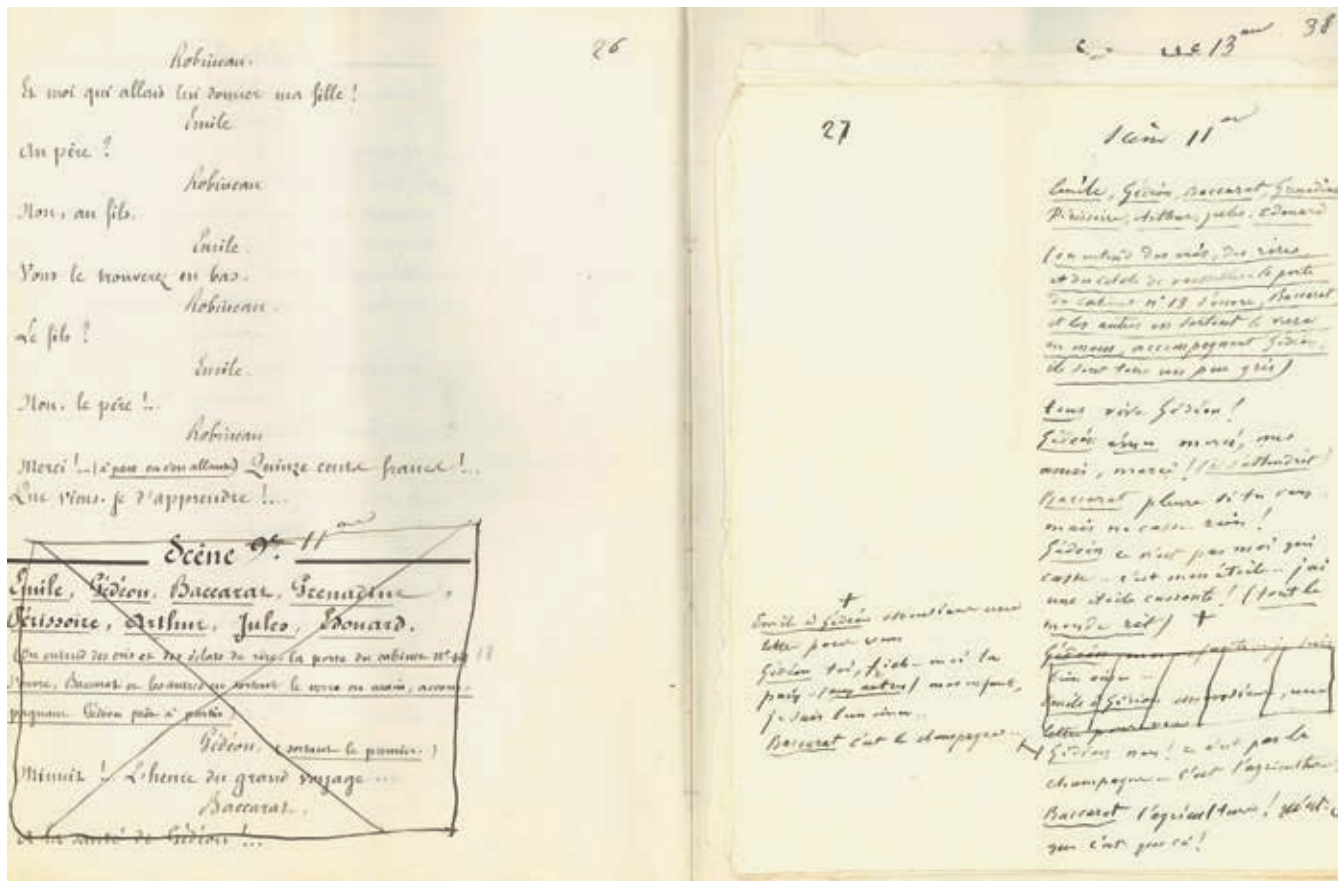 26
Robineau.
Et moi qui allais lui donner ma fille !
Émile
Au père ?
Robineau
Non, au fils.
Émile.
Vous le trouverez en bas.
Robineau.
Le fils ?
Émile.
Non, le père !..
Robineau
Merci !.. (à part en s'en allant) Quinze cents francs !...
Que viens-je d'apprendre !...
Scène 9e 11me
Émile, Gédéon, Baccarat, Grenadine,
Périssoire, Arthur, Jules, Édouard.
(On entend des cris et des éclats de rire, la porte du cabinet n° 18
s'ouvre, Baccarat et les autres en sortent le verre en main, accom-
pagnant Gédéon prêt à partir)
Gédéon. (sortant le premier.)
Minuit !.. L'heure du grand voyage ...
Baccarat.
A la santé de Gédéon !...
38
13me
27
Scène 11me
Émile, Gédéon, Baccarat, Grenadine
Périssoire, Arthur, Jules, Edouard
(on entend des cris, des rires
et des éclats de la porte
du cabinet n° 18 s'ouvre, Baccarat
et les autres en sortent le verre
en main, accompagnant Gédéon,
ils sont tous un peu gris)
tous vive Gédéon !
Gédéon ému merci, mes
amis, merci ! (il s'attendrit)
Baccarat pleure si tu veux
mais ne casse rien !
Gédéon ce n'est pas moi qui
casse .. c'est mon étoile .. j'ai
une étoile cassante ! (tout le
monde rit) +
Gédéon je suis
bien
Émile à Gédéon une
lettre pour vous
Gédéon non ! ce n'est pas le
champagne .. c'est l'agriculture
Baccarat l'agriculture ! qu'est-ce
que c'est que ça !
+
Émile à Gédéon une
lettre pour vous
Gédéon toi, fiche-moi la
paix (aux autres) mes enfants,
je suis bien ému ..
Baccarat c'est le champagne ..